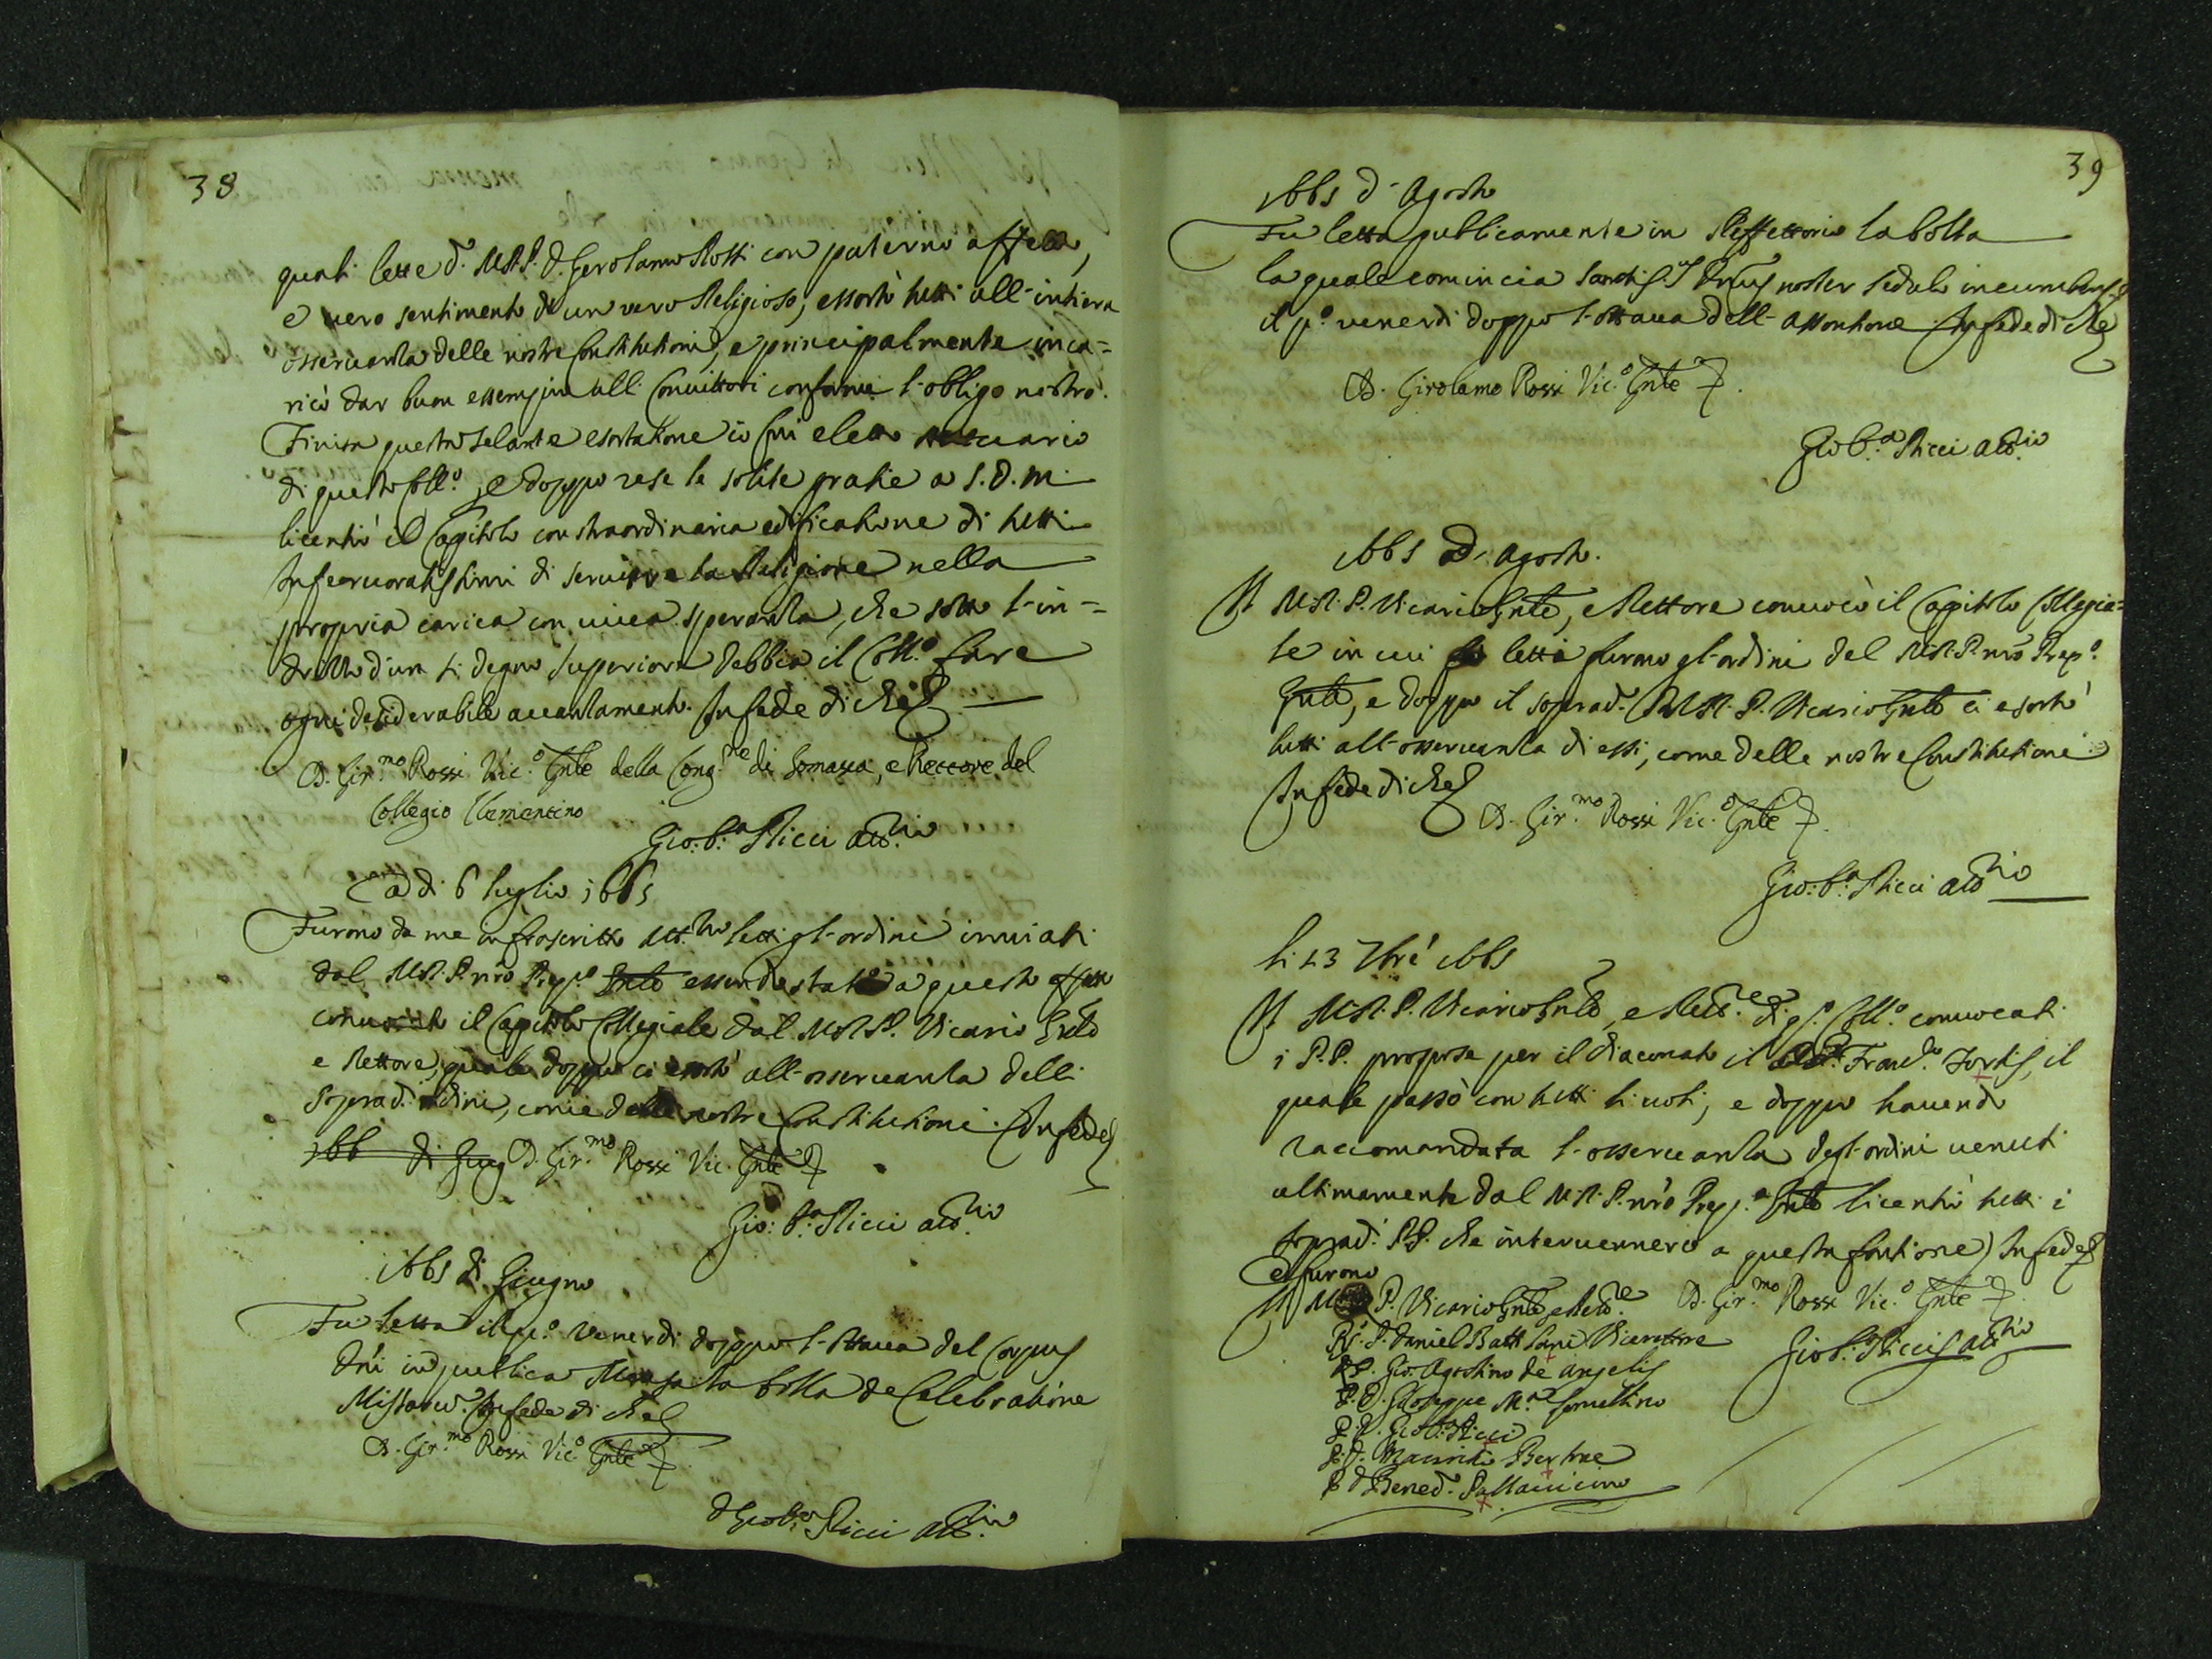 38
quali lette d. M.R.P. D. Gerolamo Rossi con paterno affetto,
e vero sentimento di un vero Religioso, essortò tutti all-intiera
osservanza delle nostre Constitutioni, e principalmente inca=
ricò dar buon essempio alli Convittori conforme l-obligo nostro.
Finita questa zelante esortatione io fui eletto attuario
di questo Coll.o, e doppo rese le solite gratie a S.D.M.
licentiò il Capitolo con straordinaria edificatione di tutti
Infervoratissimi di servire la Religione nella
propria carica con viva speranza, che sotto l-in-
drizzo d'un sì degno Superiore debbia il Coll.o fare
ogni desiderabile avanzamento. In fede di che
D. Gir.mo Rossi Vic.o Gnle della Cong.ne di Somasca, e Rettore del
Collegio Clementino
Gio: B.a Ricci att.rio
a di 6 luglio 1665
Furono da me infrascritto Att.rio letti gl-ordini inviati
dal M.R.P. nro Prep.o Gnle essendo stato a questo effetto
convocato il Capitolo Collegiale dal M.R.P. Vicario Gnle
e Rettore, quale doppo ci esortò all-osservanza delli
soprad. ordini, come delle nostre Constitutioni. In fede
166 di Giug D. Gir.mo Rossi Vic. Gnle
Gio: B.a Ricci att.rio
1665 di Giugno
Fu letta il p.o Venerdi doppo l-ottava del Corpus
Dni in publica Mensa la bolla de Celebratione
Missarū. In fede di che
D. Gir.mo Rossi Vic.o Gnle
D Gio Ricci att.rio
39
1665 d- Agosto
Fu letta publicamente in Reffettorio la bolla
la quale comincia Sanctis.s Dnus noster sedulo incumbens
il p.o venerdi doppo l-ottava dell-Assontione In fede di che
D. Girolamo Rossi Vic.o Gnle
Gio B.a Ricci att.rio
1665 d- Agosto.
Il M.R.P. Vicario Gnle, e Rettore convocò il Capitolo Collegia=
le in cui letti furono gl-ordini del M.R.P. nro Prep.o
Gnle, e doppo il soprad. M.R.P. Vicario Gnle ci esortò
tutti all-osservanza di essi, come delle nostre Constitutioni
In fede di che
D. Gir.mo Rossi Vic.o Gnle
Gio: B.a Ricci att.rio
li 23 7bre 1665
Il M.R.P. Vicario Gnle, e Rett.e di q.o Coll.o convocati
i P.P. propose per il diaconato il Franc.o Fortis, il
quale passò con tutti li voti, e doppo havendo
raccomandata l-osservanza degl-ordini venuti
ultimamente dal M.R.P. nro Prep.o Gnle licentiò tutti i
soprad. P.P. che intervennero a questa fontione) In fede
e furono
Il M.R.P. Vicario Gnle e Rett.e D. Gir.mo Rossi Vic.o Gnle
D. Daniel Batt Sani Vicerettore Gio B. Ricci att.rio
Gio: Agostino de Angelis
P. D. Gioseppe M.a Semettino
P. D. Gio B. Ricci
P. D. Mauritio Bertone
P. D Bened. Pallavicino